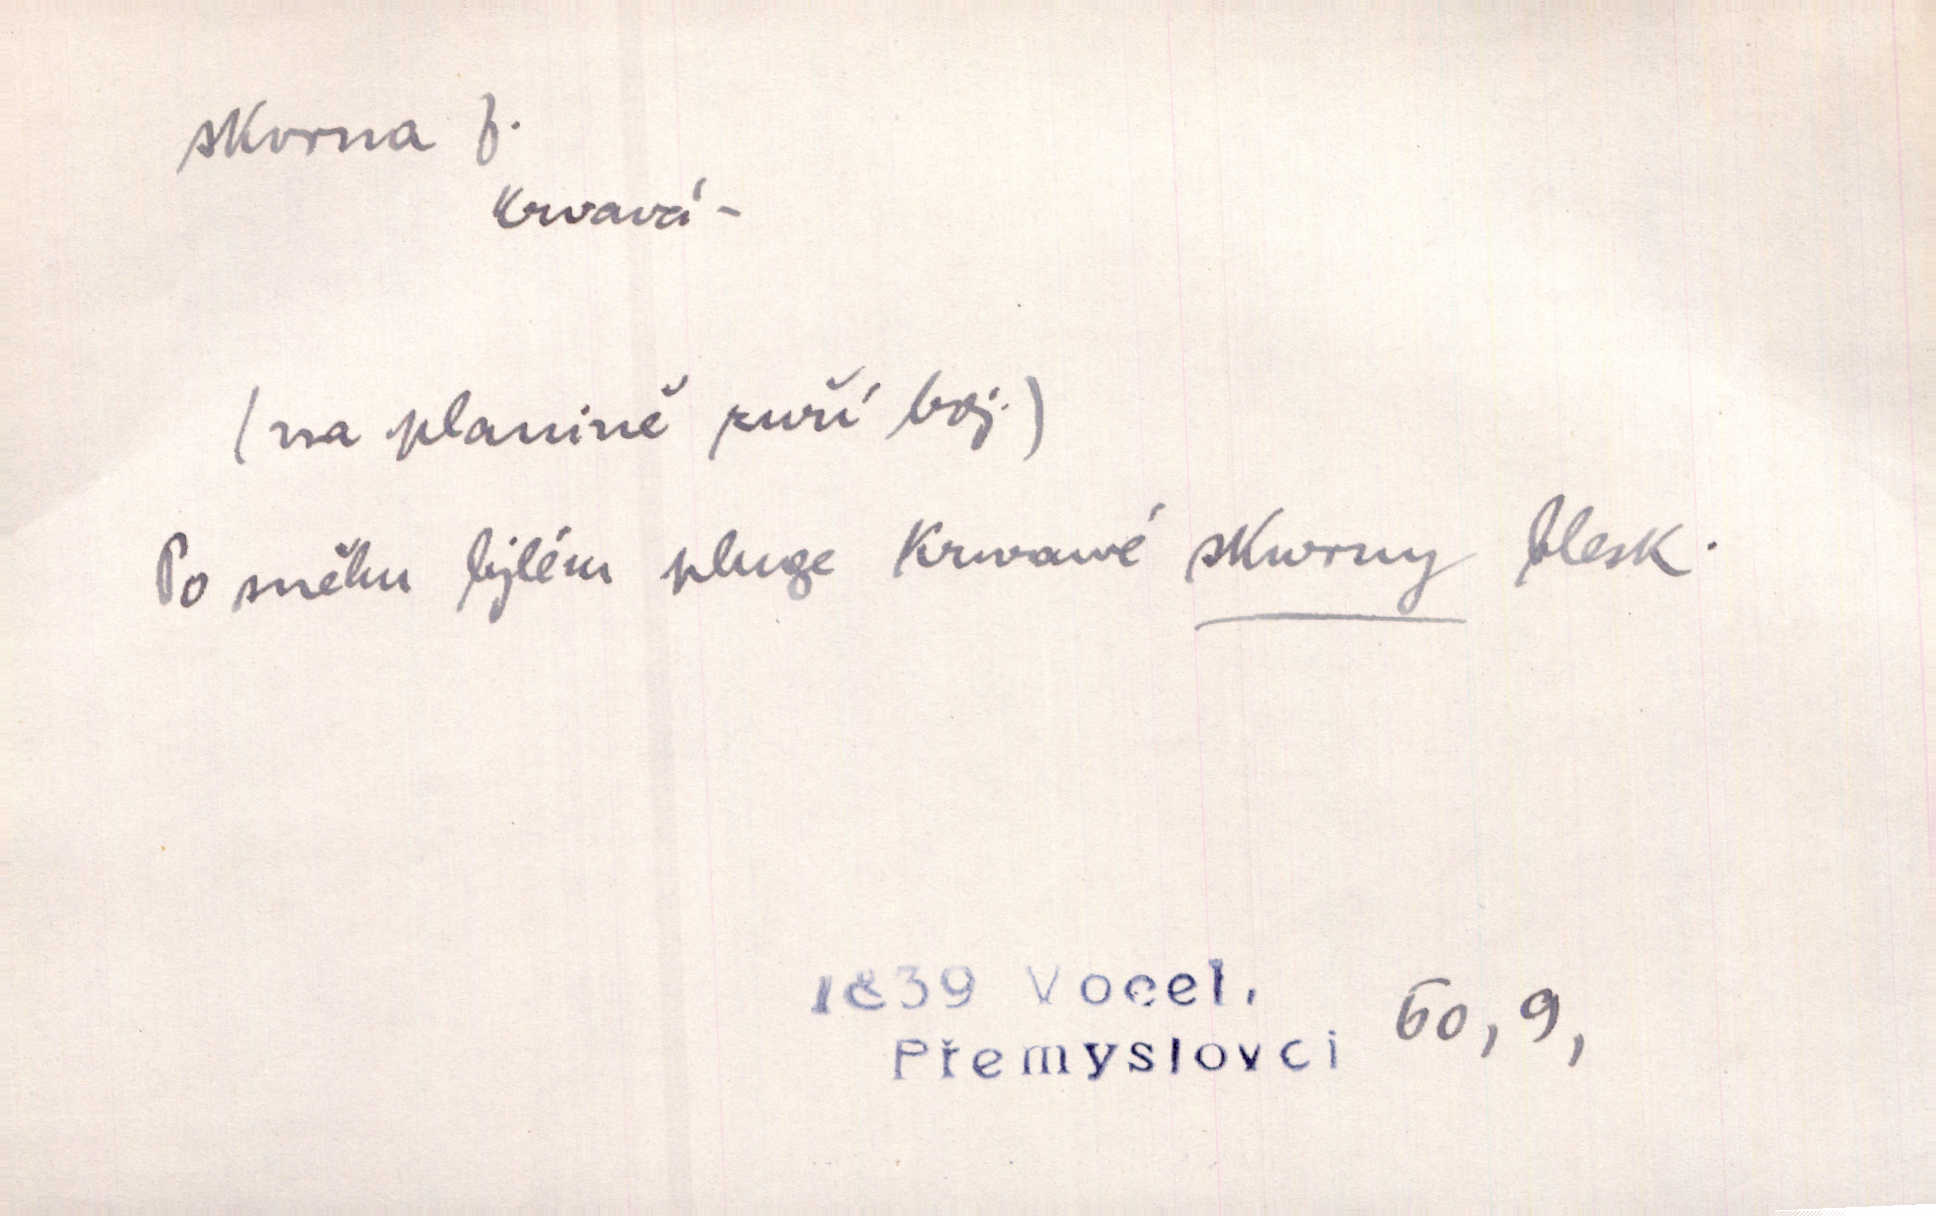 skvrna f.
krvavá -
(na planině zuří boj.)
Po sněhu bjlém pluge krwawé skwrny blesk.
1839 Vocel,
Přemyslovci 60, 9,